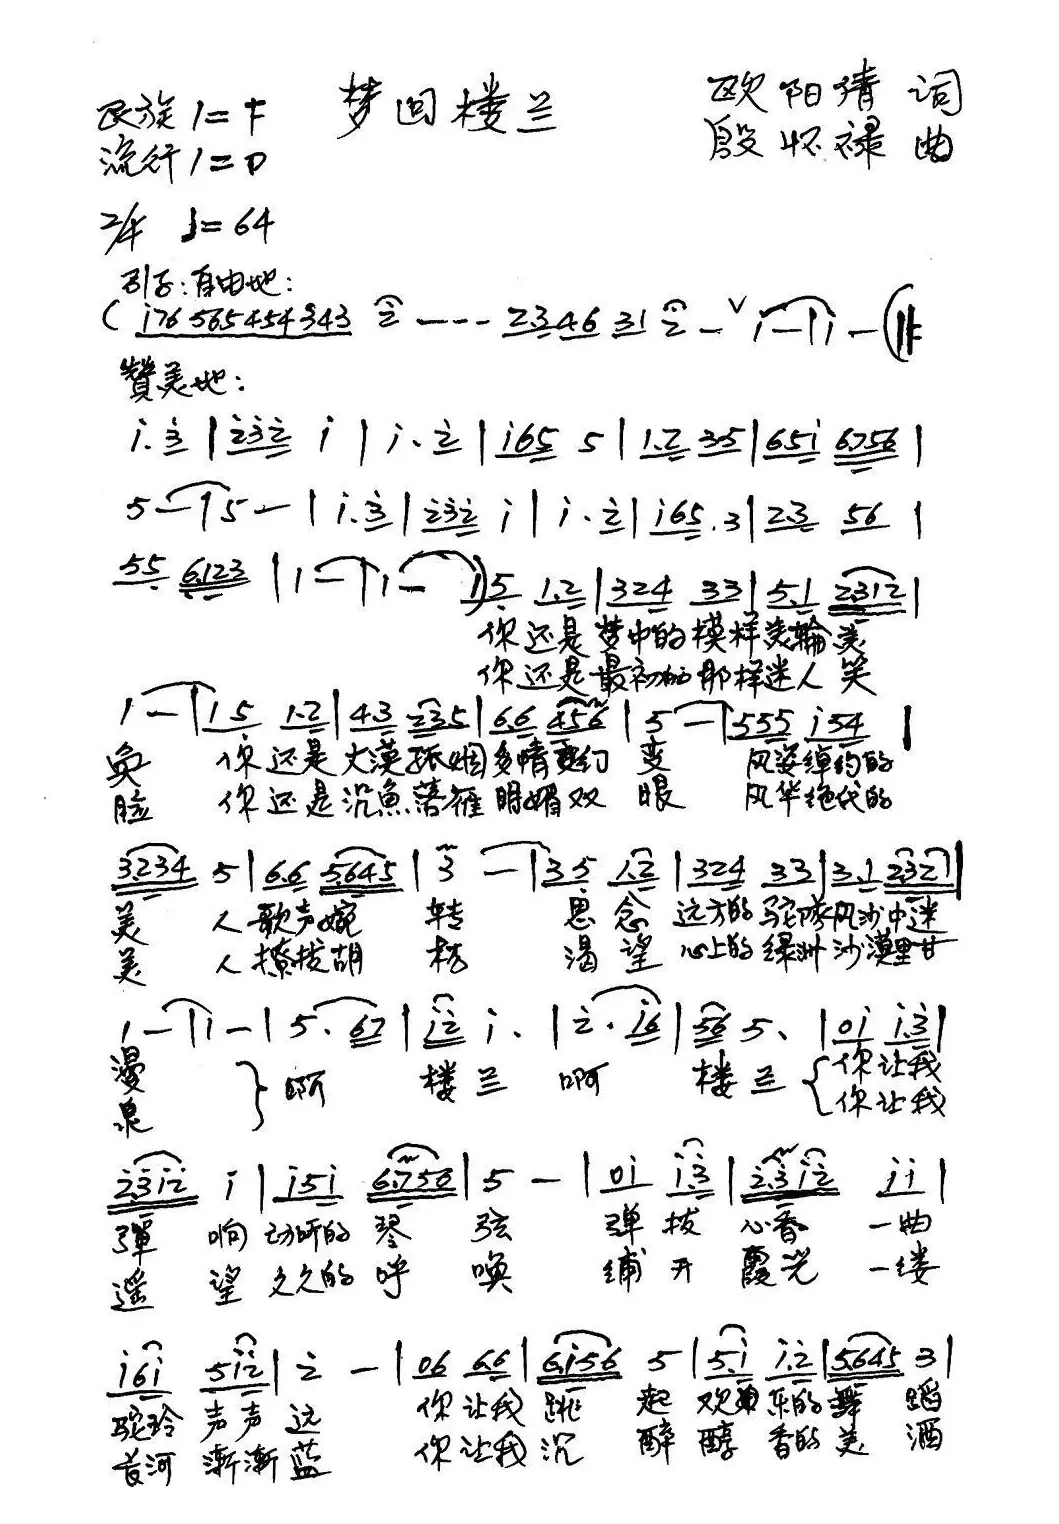 民族 1=F 梦回楼兰 欧阳清 词
流行 1=D 殷怀禄 曲
2/4 ♩=64
引子:自由地:
( i76 565 454 343 2 - - - - 2346 31 2 - ∨ i - | i - (
赞美地:
i. 3 | 232 i | i. 2 | i65 5 | 1.2 35 | 65i 6.756 |
5 - | 5 - | i. 3 | 232 i | i. 2 | i65. 3 | 2.3 56 |
55 6.123 | 1 - | 1 - | 1) 5 1.2 | 324 33 | 5.1 2312 |
你还是梦中的模样美輪美
你还是最初的那样迷人笑
1 - | 1 5 1.2 | 4.3 235 | 6.6 456 | 5 - | 555 i54 |
奂 你还是大漠孤烟多情 变 风姿绰约的
脸 你还是沉魚落雁明媚双 眼 风华绝代的
3.234 5 | 6.6 5.645 | 3 - | 3 5 1.2 | 324 33 | 3.1 2321 |
美 人歌声婉 转 思 念 远方的驼隊风沙中迷
美 人撩拨胡 杨 渴 望 心上的绿洲沙漠里甘
1 - | 1 - | 5. 67 | i2 i. | 2. i6 | 56 5. | 0i i.3 |
漫 } 啊 楼 兰 啊 楼 兰 { 你让我
泉 你让我
2.3i2 i | i5i 6.756 | 5 - | 0i i.3 | 2.3i2 ii |
彈 响 动听的 琴 弦 弹 拨 心香 一曲
遥 望 久久的 呼 唤 铺 开 霞光 一缕
i6i 5i2 | 2 - | 06 6.6 | 6.i56 5 | 5.i i.2 | 5.645 3 |
驼玲 声声 远 你让我 跳 起 欢 乐的 舞 蹈
漸漸 蓝 你让我 沉 醉 醇 香的 美 酒